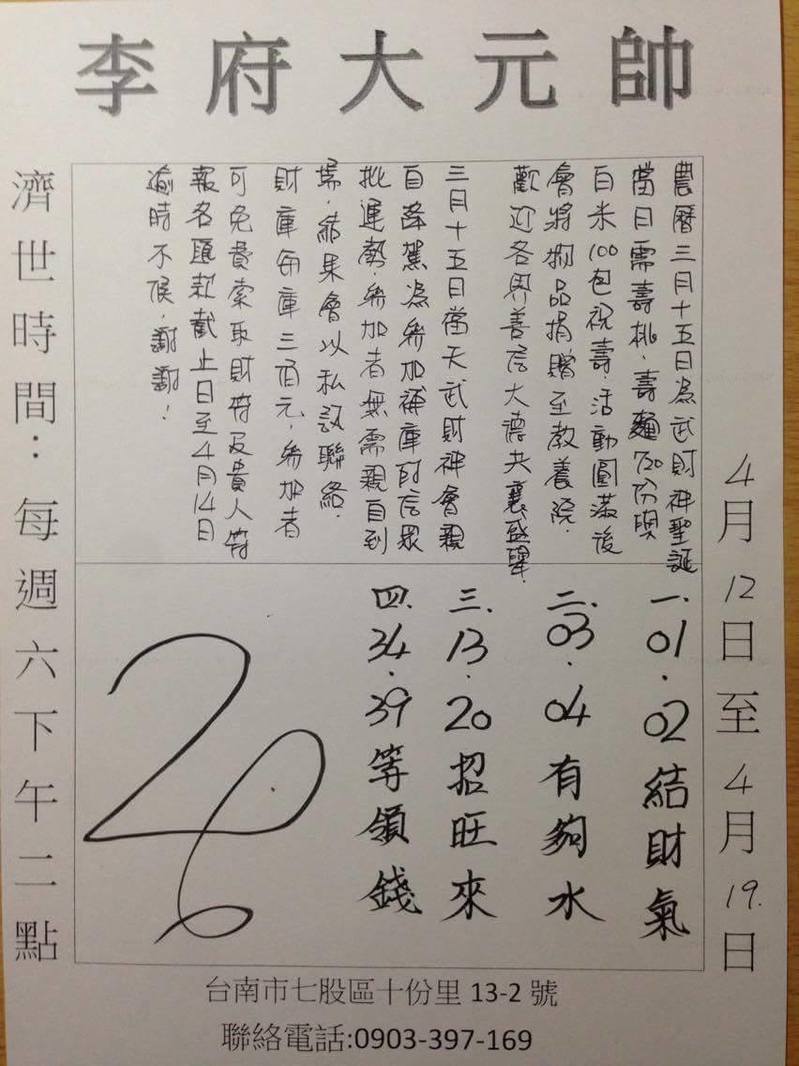 李府大元帥
4月12日至4月19.日
農曆三月十五日為武財神聖誕
當日需壽桃、壽麵720份與
白米100包祝壽.活動圓滿後
會將物品捐贈至教養院.
歡迎各界善信大德共襄盛舉.
三月十五日當天武財神會親
自降駕為參加補庫財信眾
批運勢.參加者無需親自到
場.結果會以私訊聯絡.
財庫每庫三佰元.參加者
可免費索取財符及貴人符
報名匯款截止日至4月14日
逾時不候.謝謝!
一.01.02結財氣
二.03.04有夠水
三.13.20招旺來
四.34.39等領錢
26
濟世時間:每週六下午二點
台南市七股區十份里13-2號
聯絡電話:0903-397-169